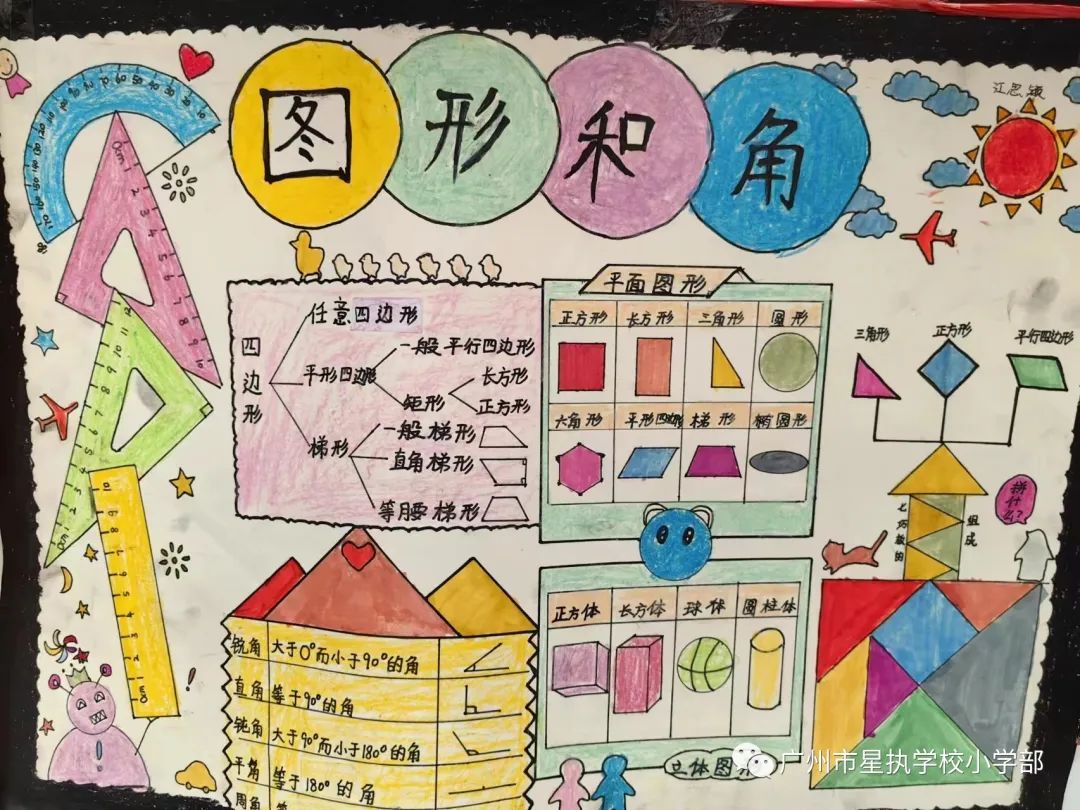 图形和角
江思颖
四边形
任意四边形
平形四边形
一般平行四边形
矩形
长方形
正方形
梯形
一般梯形
直角梯形
等腰梯形
平面图形
正方形 长方形 三角形 圆形
六角形 平形四边形 梯形 椭圆形
三角形 正方形 平行四边形
拼什么?
七巧板由
组成
锐角 大于0°而小于90°的角
直角 等于90°的角
钝角 大于90°而小于180°的角
平角 等于180°的角
周角
正方体 长方体 球体 圆柱体
立体图形
广州市星执学校小学部